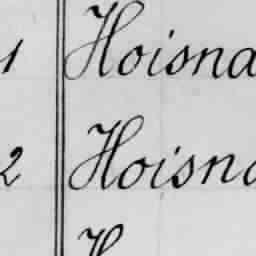 1 Hoisna
2 Hoisna
H